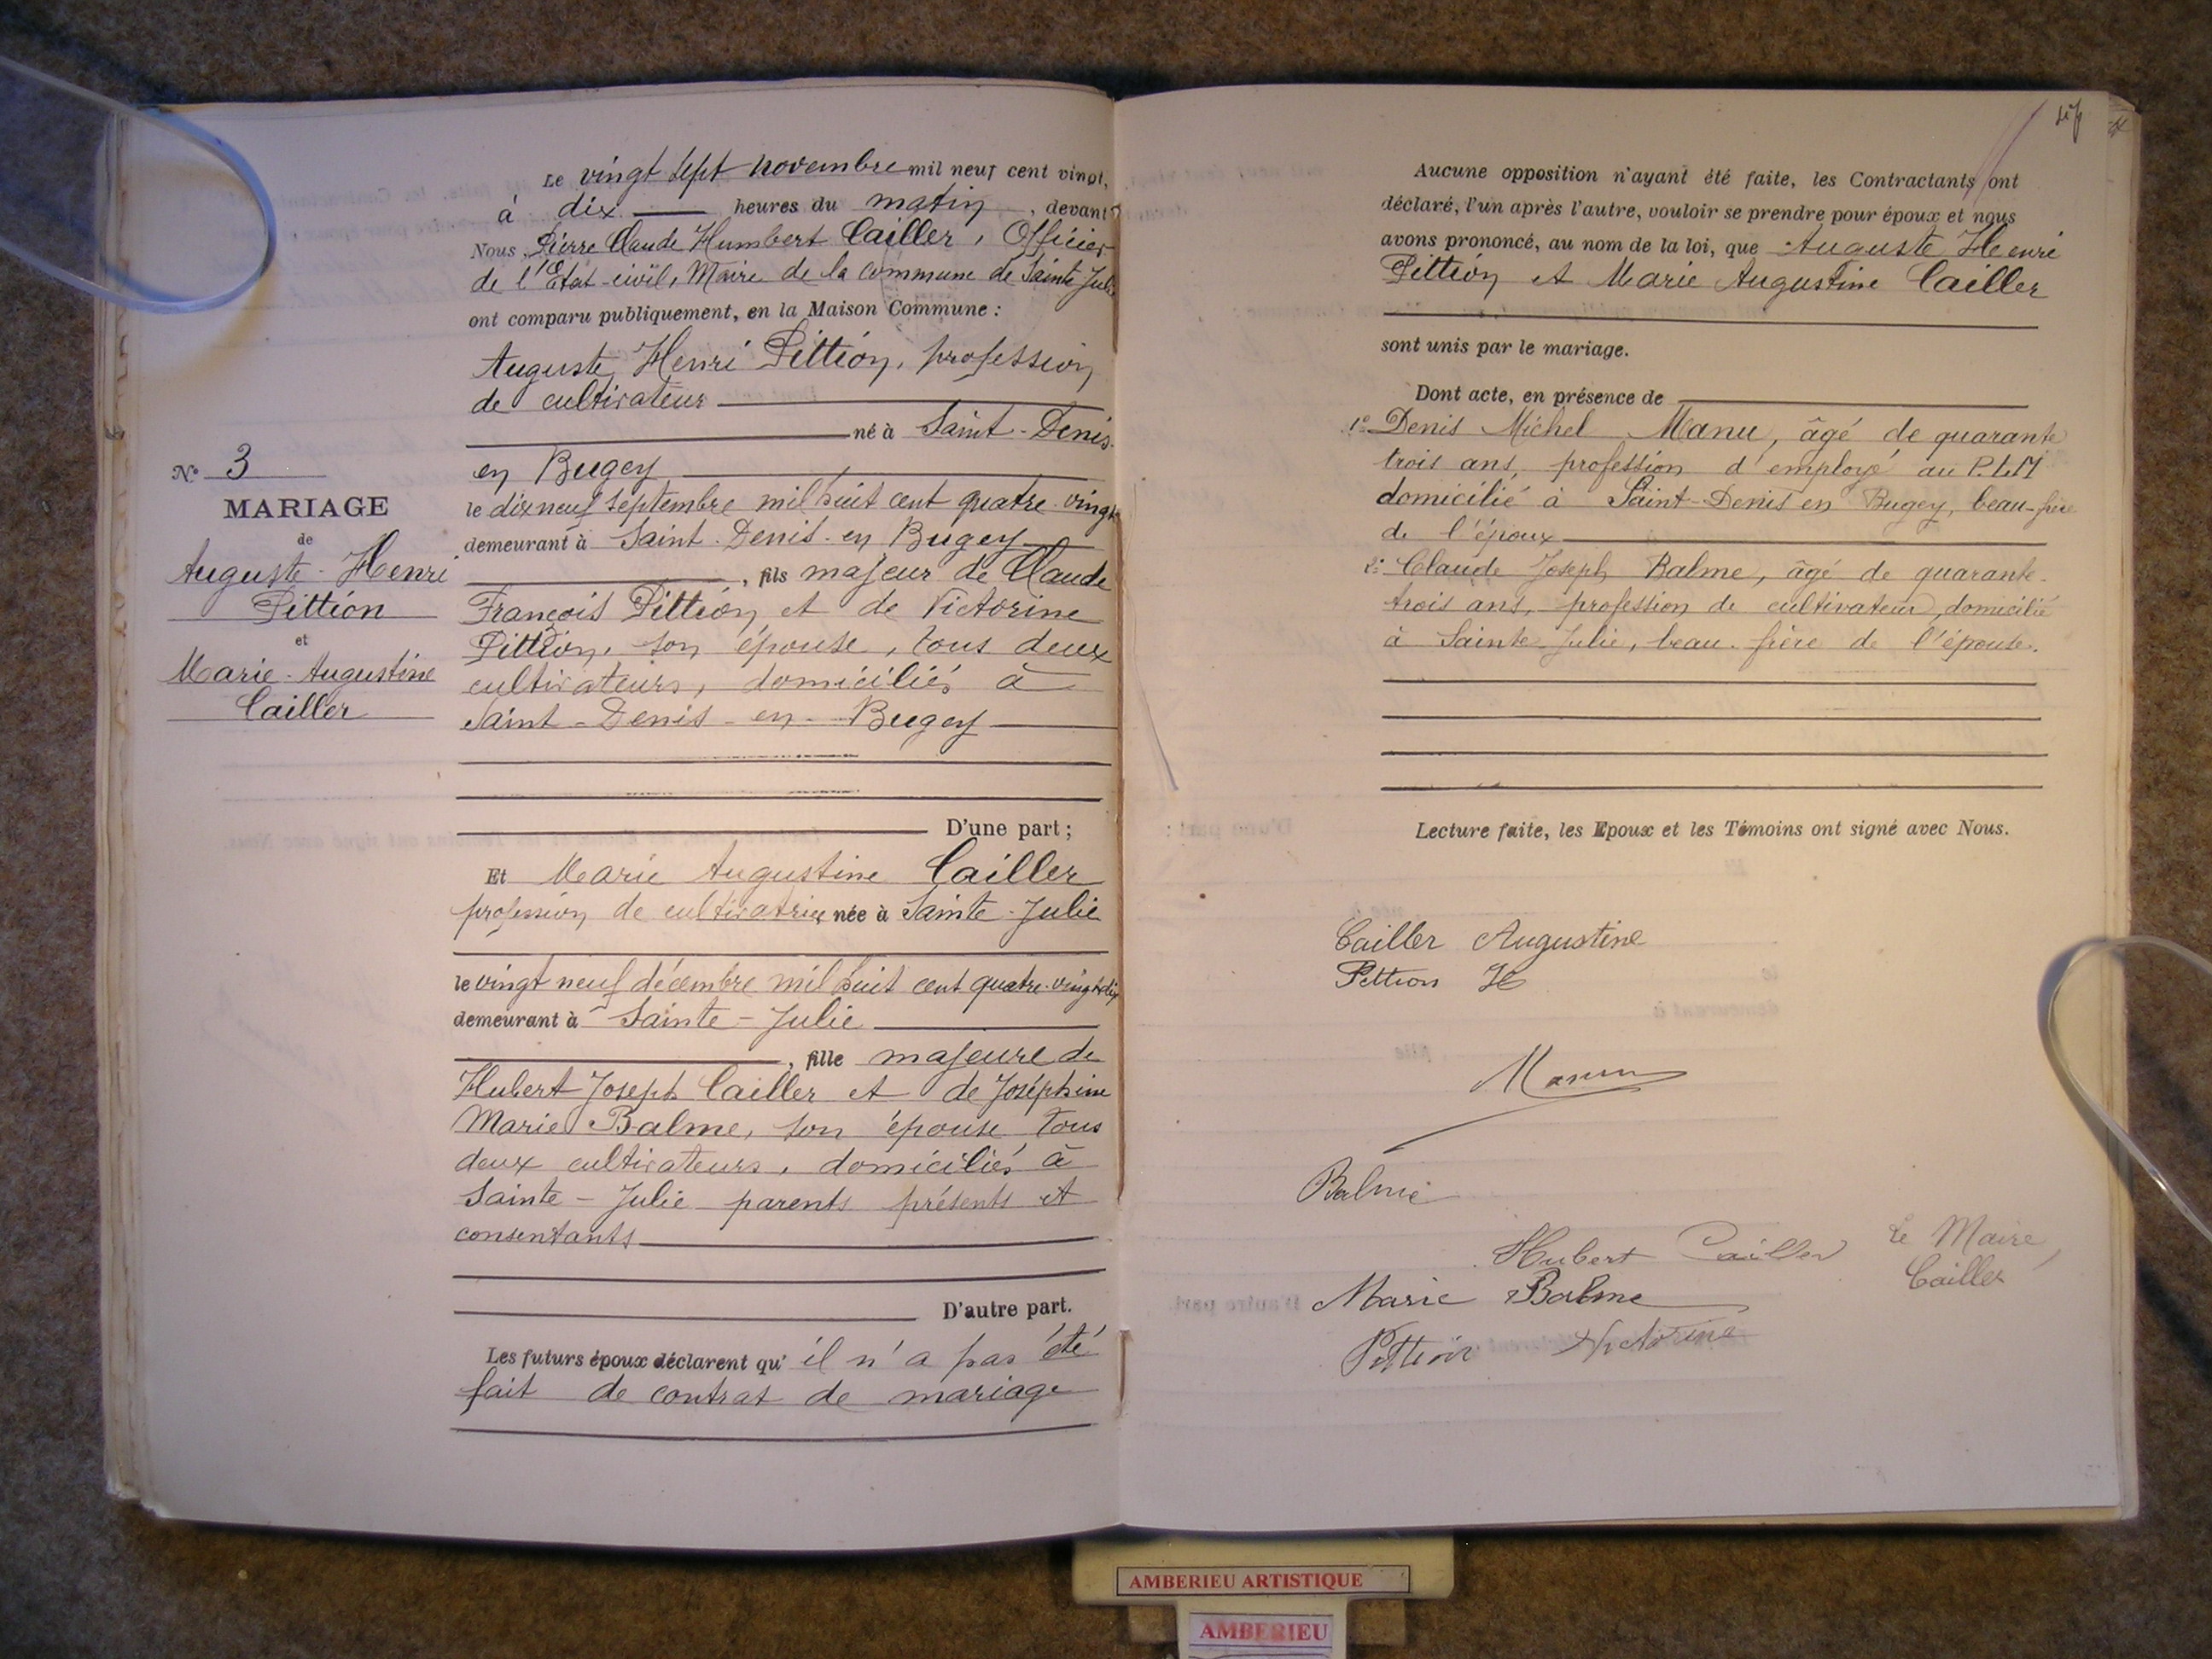 Le vingt sept novembre mil neuf cent vingt,
à dix heures du matin, devant
Nous, Pierre Claude Humbert Cailler, Officier
de l'Etat-civil, Maire de la commune de Sainte Julie
ont comparu publiquement, en la Maison Commune :
Auguste Henri Pittion, profession
de cultivateur
né à Saint-Denis-
en Bugey
le dix neuf septembre mil huit cent quatre-vingt
demeurant à Saint-Denis-en Bugey
, fils majeur de Claude
François Pittion et de Victorine
Pittion, son épouse, tous deux
cultivateurs, domiciliés à
Saint-Denis-en-Bugey
D'une part ;
Et Marie Augustine Cailler
profession de cultivatrice née à Sainte-Julie
le vingt neuf décembre mil huit cent quatre-vingt dix
demeurant à Sainte-Julie
, fille majeure de
Hubert Joseph Cailler et de Joséphine
Marie Balme, son épouse tous
deux cultivateurs, domiciliés à
Sainte-Julie parents présents et
consentants
D'autre part.
Les futurs époux déclarent qu'il n'a pas été
fait de contrat de mariage
N° 3
MARIAGE
de
Auguste-Henri
Pittion
et
Marie-Augustine
Cailler
Aucune opposition n'ayant été faite, les Contractants ont
déclaré, l'un après l'autre, vouloir se prendre pour époux et nous
avons prononcé, au nom de la loi, que Auguste Henri
Pittion et Marie Augustine Cailler
sont unis par le mariage.
Dont acte, en présence de
1° Denis Michel Manu, âgé de quarante
trois ans, profession d'employé au P.L.M
domicilié à Saint-Denis en Bugey, beau-frère
de l'époux
2° Claude Joseph Balme, âgé de quarante-
trois ans, profession de cultivateur, domicilié
à Sainte-Julie, beau-frère de l'épouse.
Lecture faite, les Epoux et les Témoins ont signé avec Nous.
Cailler Augustine
Pittion H
Manu
Balme
Hubert Cailler
Le Maire,
Cailler
Marie Balme
Pittion Victorine
AMBERIEU ARTISTIQUE
AMBERIEU